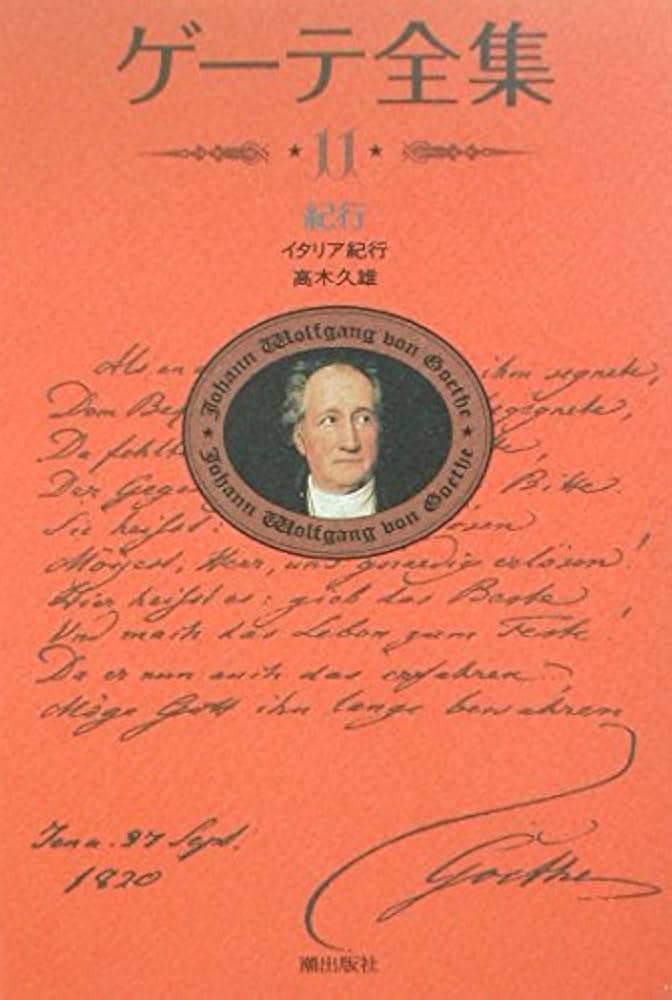 ゲーテ全集
11
紀行
イタリア紀行
高木久雄
Johann Wolfgang von Goethe
Johann Wolfgang von Goethe
Als an ihm segnete,
Dem
Da fehlt
Der Gegen Bitte.
Sie heißt: lösen
Möget, Herr, uns gnaedig erlösen!
Hier heißt es: gieb das Beste
Und mach das Leben zum Feste!
Da er nun auch das erfahren
Möge Gott ihn lange bewahren
Jena. 27 Sept.
1820
Goethe
潮出版社